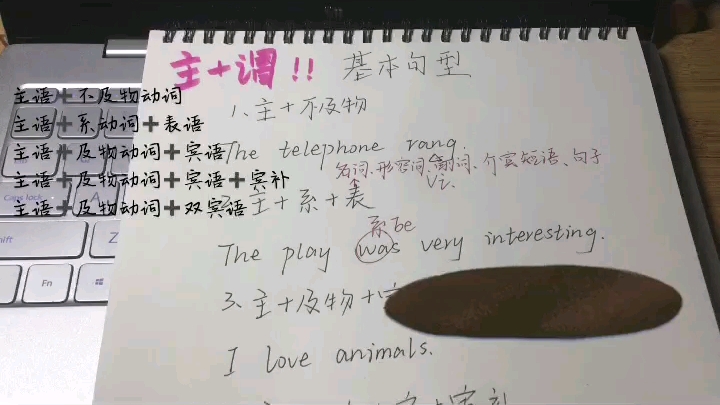 主+谓!! 基本句型
主语+不及物动词
主语+系动词+表语
主语+及物动词+宾语
主语+及物动词+宾语+宾补
主语+及物动词+双宾语
1、主+不及物
The telephone rang.
vi.
名词、形容词、副词、介宾短语、句子
主+系+表
系be
The play was very interesting.
3、主+及物+
I love animals.
宾补
Caps Lock
shift
Fn
Z